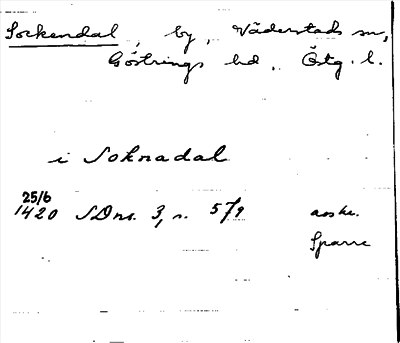 Sockendal, by, Väderstads sn,
Göstrings hd, Östg. l.
i Soknadal
25/6
1420 SDns. 3, s. 579 avskr.
Sparre